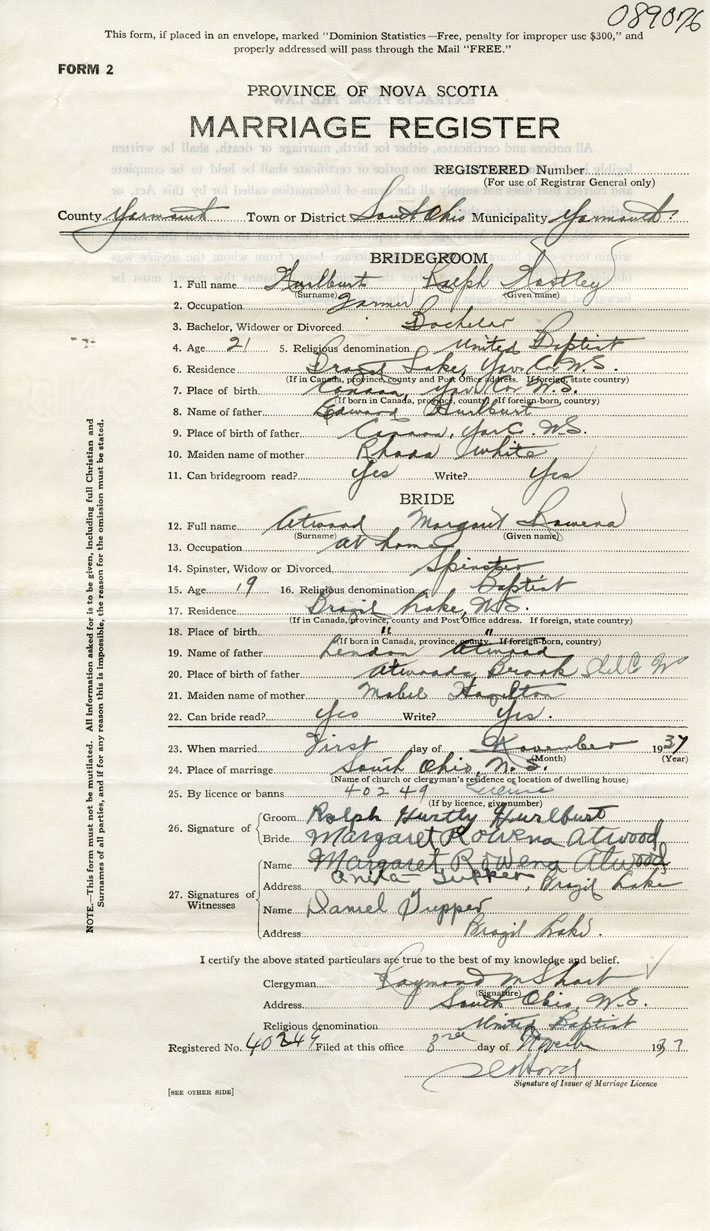 089076
This form, if placed in an envelope, marked "Dominion Statistics—Free, penalty for improper use $300," and
properly addressed will pass through the Mail "FREE."
FORM 2
PROVINCE OF NOVA SCOTIA
MARRIAGE REGISTER
REGISTERED Number
(For use of Registrar General only)
County Yarmouth Town or District South Ohio Municipality Yarmouth
BRIDEGROOM
1. Full name Hurlburt Ralph
(Surname) (Given name)
2. Occupation Farmer
3. Bachelor, Widower or Divorced Bachelor
4. Age 21 5. Religious denomination United Baptist
6. Residence Brazil Lake, Yar. Co. N.S.
(If in Canada, province, county and Post Office address. If foreign, state country)
7. Place of birth Canaan, Yar. Co. N.S.
(If born in Canada, province, county. If foreign-born, country)
8. Name of father Edward Hurlburt
9. Place of birth of father Canaan, Yar C. N.S.
10. Maiden name of mother Rhoda White
11. Can bridegroom read? Yes Write? Yes
BRIDE
12. Full name Atwood Margaret Rowena
(Surname) (Given name)
13. Occupation at home
14. Spinster, Widow or Divorced Spinster
15. Age 19 16. Religious denomination Baptist
17. Residence Brazil Lake, N.S.
(If in Canada, province, county and Post Office address. If foreign, state country)
18. Place of birth " "
(If born in Canada, province, county. If foreign-born, country)
19. Name of father Lendon Atwood
20. Place of birth of father Atwoods Brook Shel C N S
21. Maiden name of mother Mabel Hagilton
22. Can bride read? Yes Write? Yes.
23. When married First day of November 1937
(Month) (Year)
24. Place of marriage South Ohio, N.S.
(Name of church or clergyman's residence or location of dwelling house)
25. By licence or banns 40249 Licence
(If by licence, give number)
26. Signature of Groom Ralph Hurtly Hurlburt
Bride Margaret Rowena Atwood
27. Signatures of Witnesses Name Margaret Rowena Atwood
Anita Tupper
Address Brazil Lake
Name Daniel Tupper
Address Brazil Lake.
I certify the above stated particulars are true to the best of my knowledge and belief.
Clergyman Raymond M Short
(Signature)
Address South Ohio, N.S.
Religious denomination United Baptist
Registered No. 40249 Filed at this office 3rd day of 1937
Signature of Issuer of Marriage Licence
[SEE OTHER SIDE]
NOTE.—This form must not be mutilated. All information asked for is to be given, including full Christian and
Surnames of all parties, and if for any reason this is impossible, the reason for the omission must be stated.